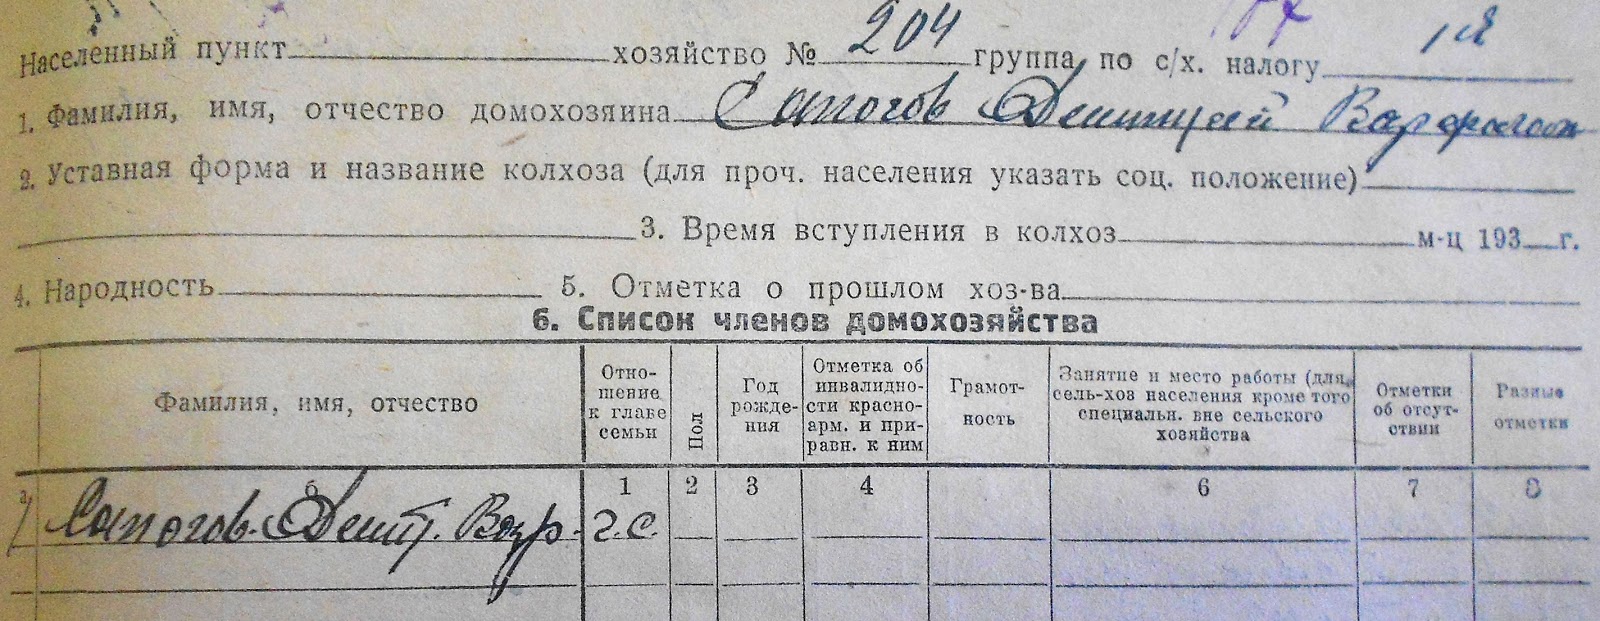 Населенный пункт хозяйство № 204 группа по с/х. налогу 1-я
1. Фамилия, имя, отчество домохозяина Сапогов Дмитрий
2. Уставная форма и название колхоза (для проч. населения указать соц. положение)
3. Время вступления в колхоз м-ц 193 г.
4. Народность 5. Отметка о прошлом хоз-ва
6. Список членов домохозяйства
Фамилия, имя, отчество
Отно-
шение
к главе
семьи
Пол
Год
рожде-
ния
Отметка об
инвалидно-
сти красно-
арм. и при-
равн. к ним
Грамот-
ность
Занятие и место работы (для
сель-хоз населения кроме того
специальн. вне сельского
хозяйства
Отметки
об отсут-
ствии
Разные
отметки
а б 1 2 3 4 6 7 8
1 Сапогов Дмит. Варф. г.с.